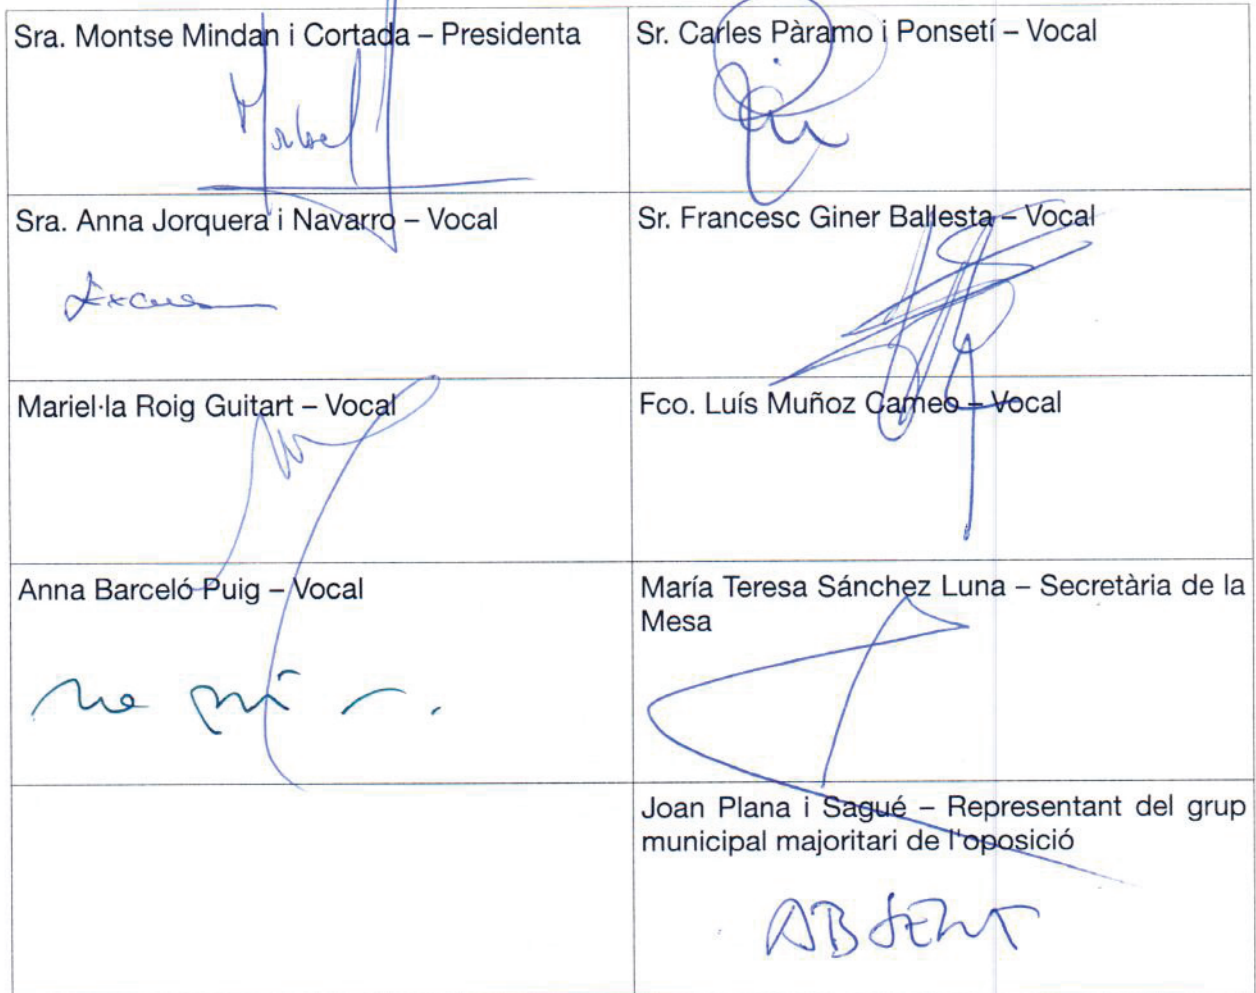 Sra. Montse Mindan i Cortada – Presidenta
Sr. Carles Pàramo i Ponsetí – Vocal
Sra. Anna Jorquera i Navarro – Vocal
Sr. Francesc Giner Ballesta – Vocal
Mariel·la Roig Guitart – Vocal
Fco. Luís Muñoz Cameo – Vocal
Anna Barceló Puig – Vocal
María Teresa Sánchez Luna – Secretària de la
Mesa
Joan Plana i Sagué – Representant del grup
municipal majoritari de l'oposició
ABSENT